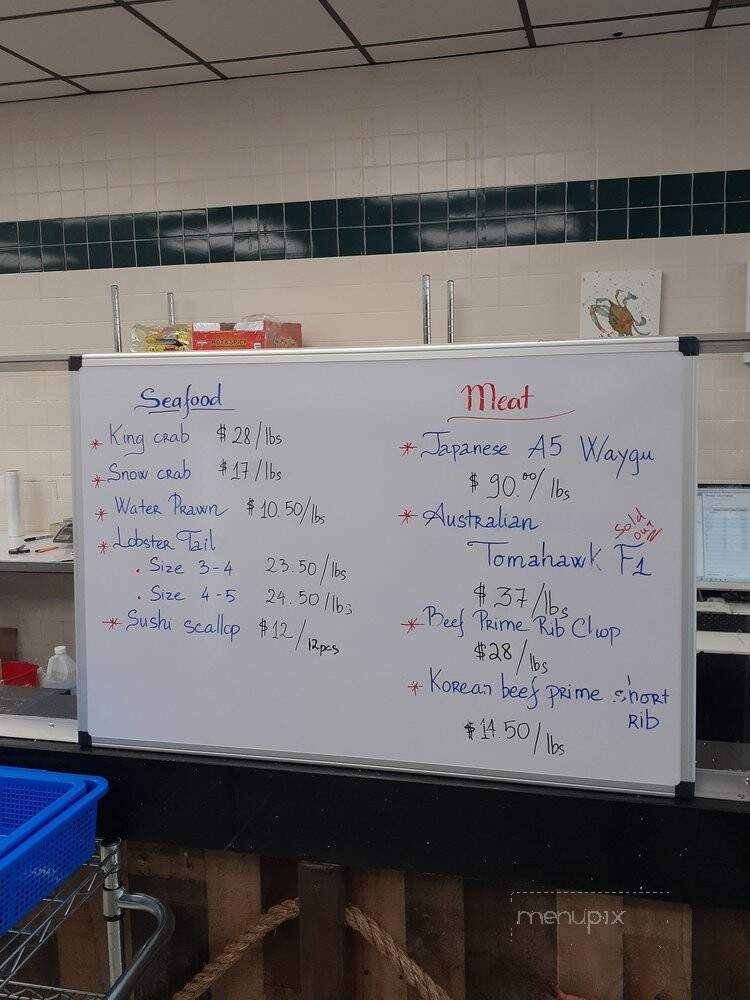 HOT & SPICY
Seafood
* King crab $28/lbs
* Snow crab $17/lbs
* Water Prawn $10.50/lbs
* Lobster Tail
. Size 3-4 23.50/lbs
. Size 4-5 24.50/lbs
* Sushi scallop $12/12pcs
Meat
* Japanese A5 Waygu
$90.00/lbs
* Australian
Tomahawk F1
sold
out
$37/lbs
* Beef Prime Rib Chop
$28/lbs
* Korean beef prime short
rib
$14.50/lbs
menupix